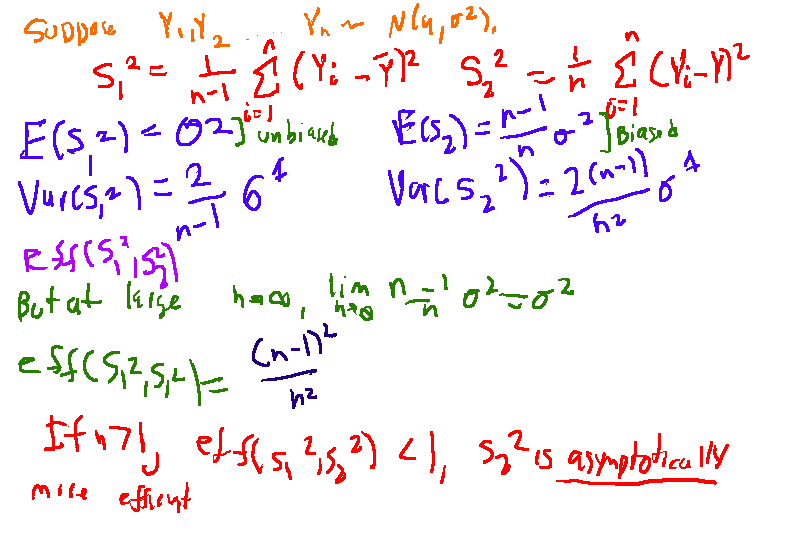 Suppose Y₁, Y₂ ... Yₙ ~ N(μ, σ²).
S₁² = 1/(n-1) Σᵢ₌₁ⁿ (Yᵢ - Ȳ)² S₂² = 1/n Σᵢ₌₁ⁿ (Yᵢ - Ȳ)²
E(S₁²) = σ2 ] unbiased E(S₂) = (n-1)/n σ² ] Biased
Var(S₁²) = 2/(n-1) σ⁴ Var(S₂²) = 2(n-1)/n² σ⁴
eff(S₁², S₂²)
But at large n→∞, lim n→∞ (n-1)/n σ² = σ²
eff(S₁², S₁²) = (n-1)²/n²
If n>1, eff(S₁², S₂²) < 1, S₂² is asymptotically
more efficient